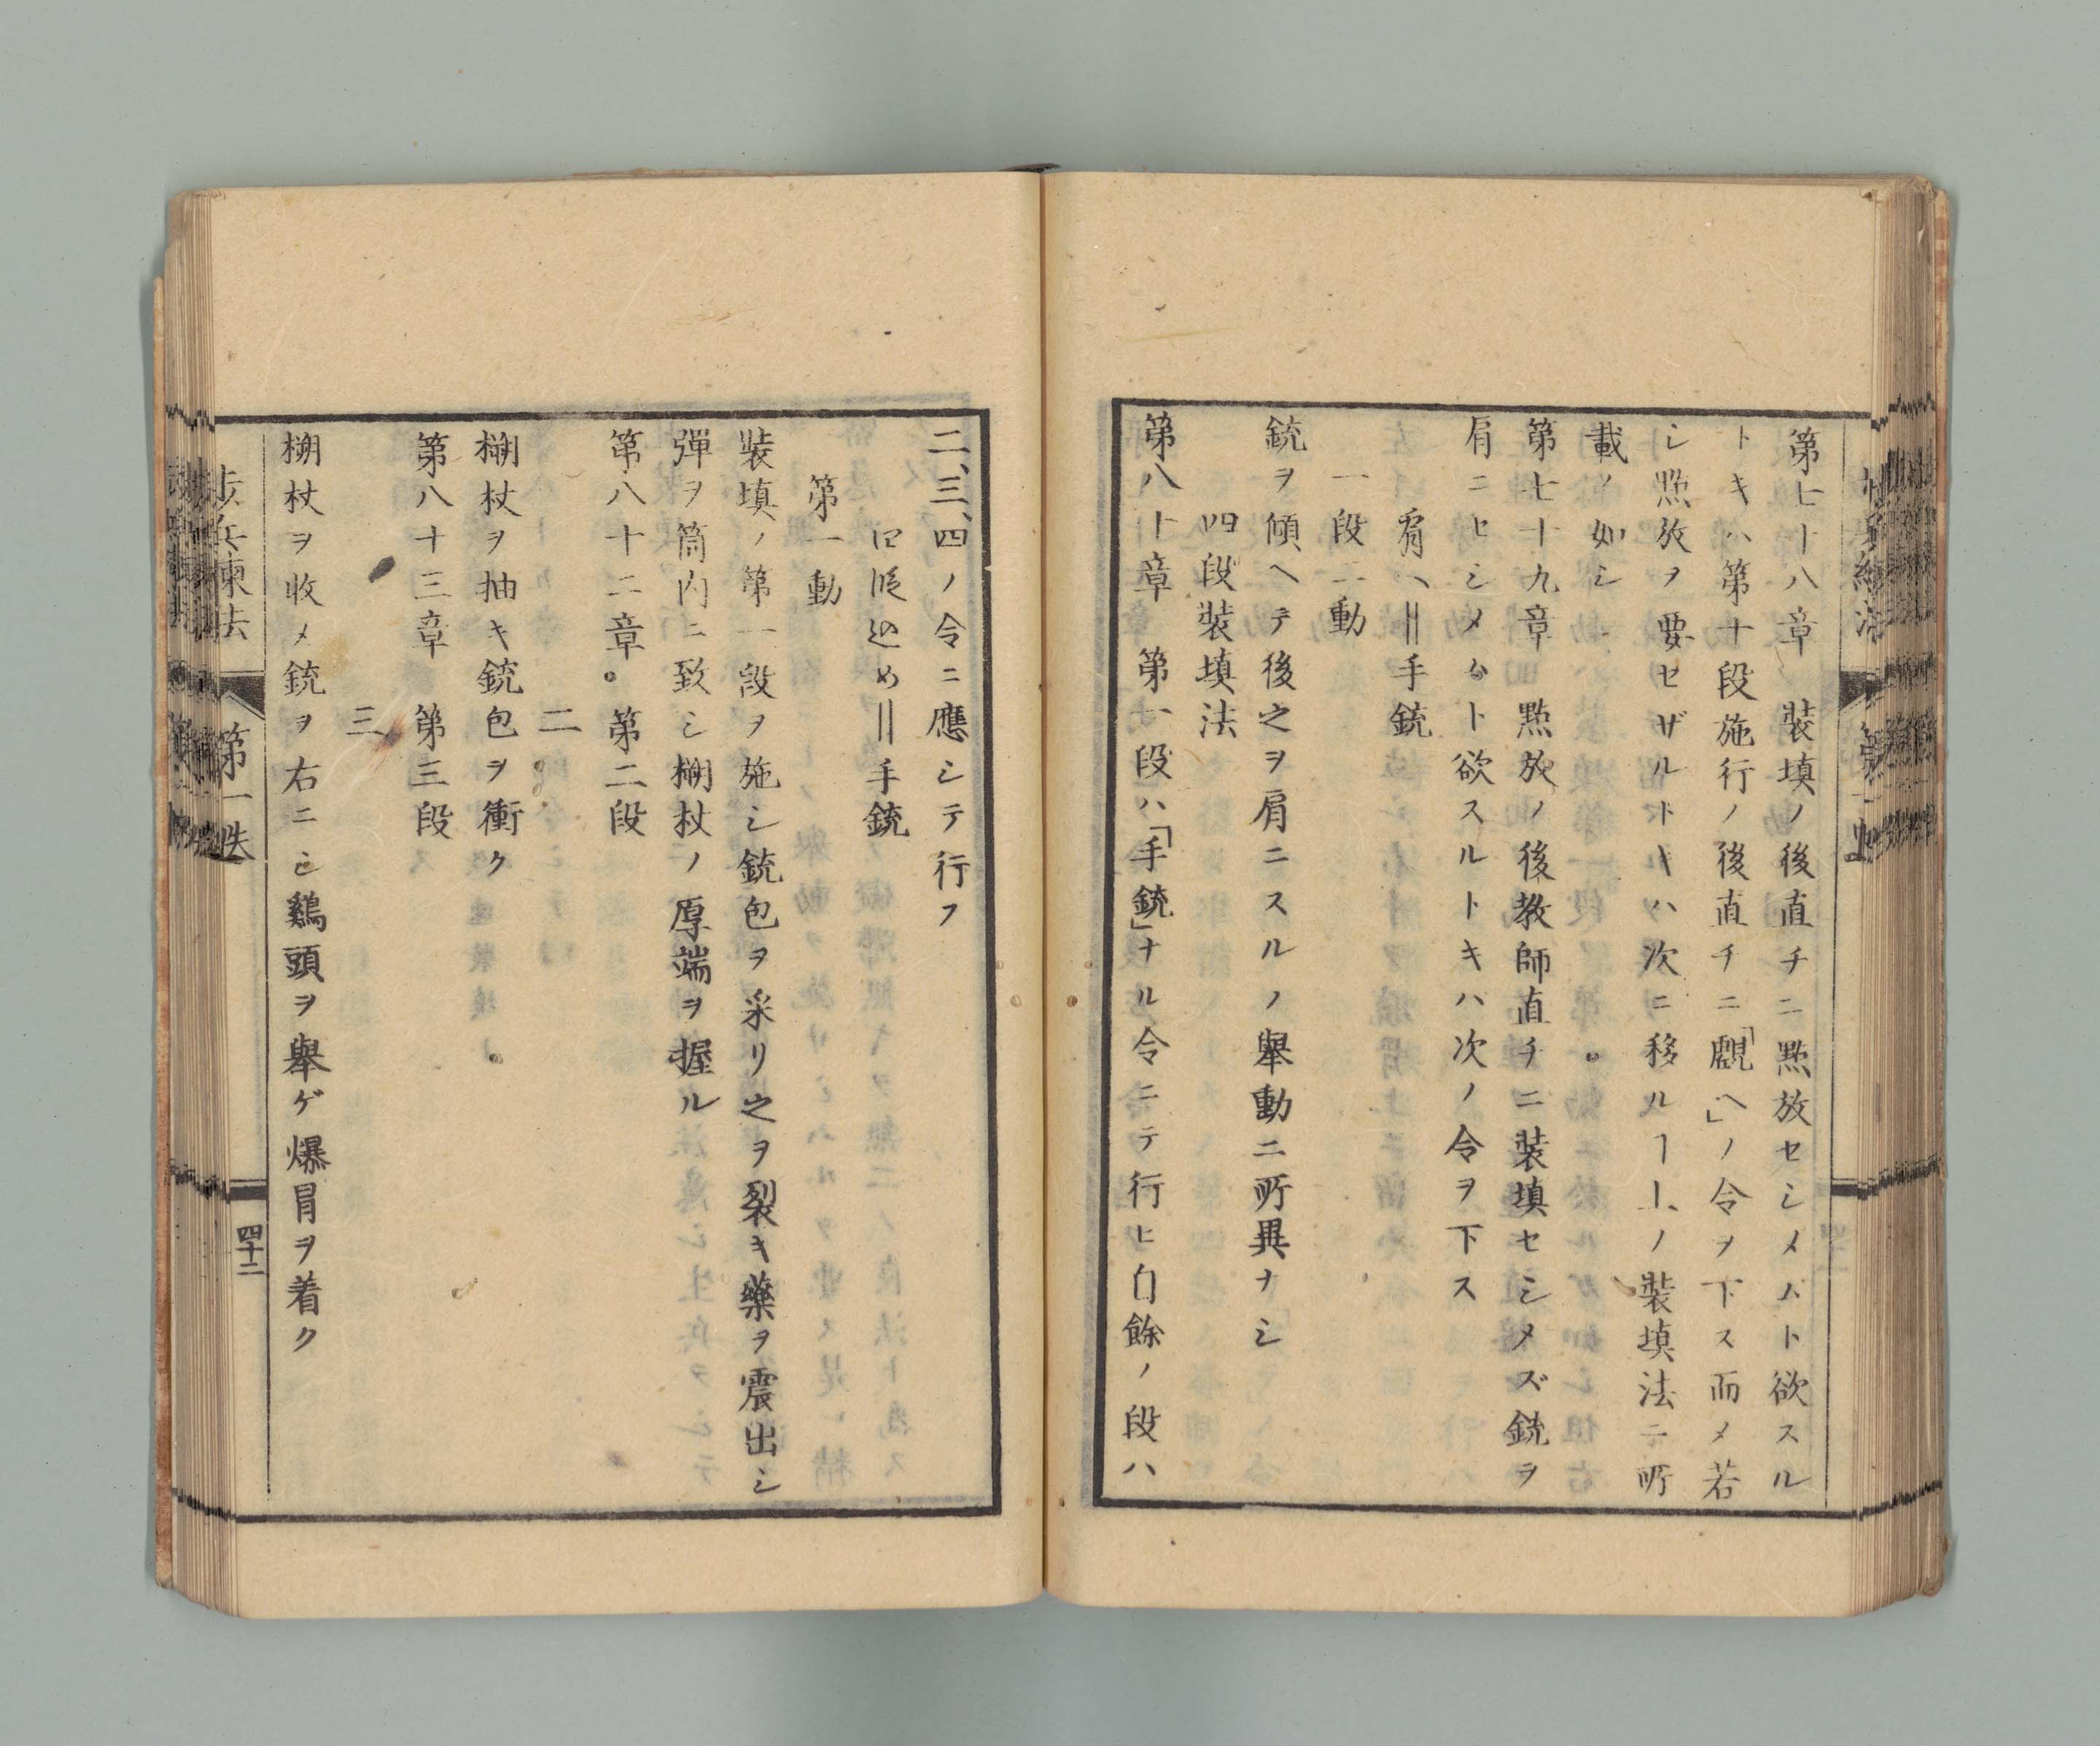 第七十八章　装填ノ後直チニ㸃放セシメムト欲スル
トキハ第十段施行ノ後直チニ「覰ヘ」ノ令ヲ下ス而メ若
シ㸃放ヲ要セザルトキハ次ニ移ルヿ上ノ装填法ニ所
載ノ如シ
第七十九章　㸃放ノ後教師直チニ装填セシメズ銃ヲ
肩ニセシメムト欲スルトキハ次ノ令ヲ下ス
肩ヘ‖手銃
一段二動
銃ヲ傾ヘテ後之ヲ肩ニスルノ舉動ニ所異ナシ
四段装填法
第八十章　第一段ハ「手銃」ナル令ニテ行ヒ自餘ノ段ハ
二、三、四ノ令ニ應シテ行フ
込め‖手銃
第一動
装填ノ第一段ヲ施シ銃包ヲ采リ之ヲ裂キ藥ヲ震出シ
彈ヲ筒内ニ致シ棚杖ノ厚端ヲ握ル
第八十二章。第二段
二
棚杖ヲ抽キ銃包ヲ衝ク
第八十三章　第三段
三
棚杖ヲ收メ銃ヲ右ニシ鷄頭ヲ舉ゲ爆冒ヲ着ク
歩兵練法
第一帙
四十二